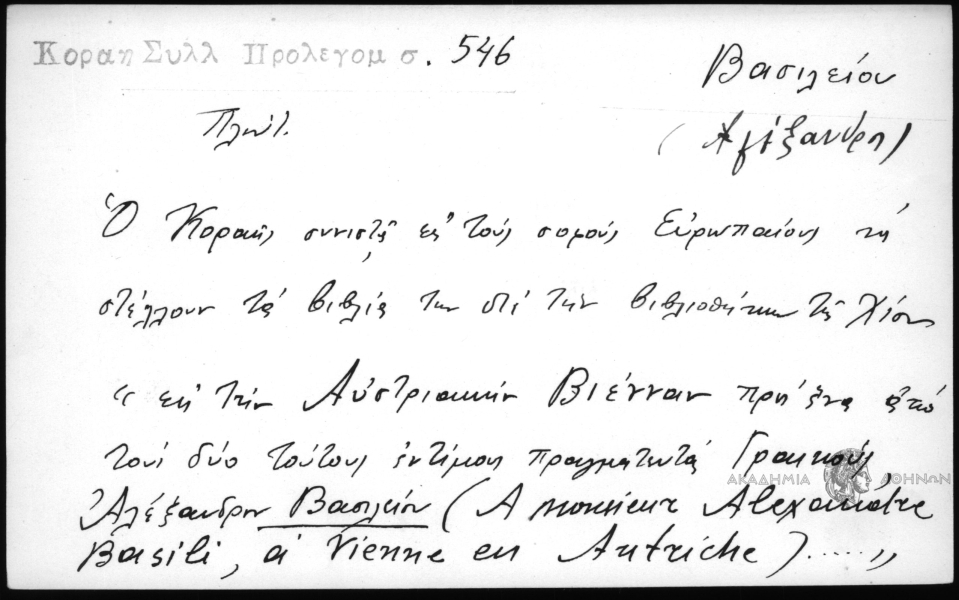 Κοραη Συλλ Προλεγομ σ. 546
Βασιλείου
(Αλέξανδρ)
Πλούτ.
Ὁ Κοραῆς συνιστᾷ εἰς τοὺς σοφοὺς Εὐρωπαίους νὰ
στέλλουν τὰ βιβλία των διὰ τὴν βιβλιοθήκην τῆς Χίου
" εἰς τὴν Αὐστριακὴν Βιένναν πρὸς ἕνα ἀπὸ
τοὺς δύο τούτους ἐντίμους πραγματευτὰς Γραικοὺς
Ἀλέξανδρον Βασιλείου (A monsieur Alexandre
Basili, à Vienne en Autriche).....,,
ΑΚΑΔΗΜΙΑ ΑΘΗΝΩΝ